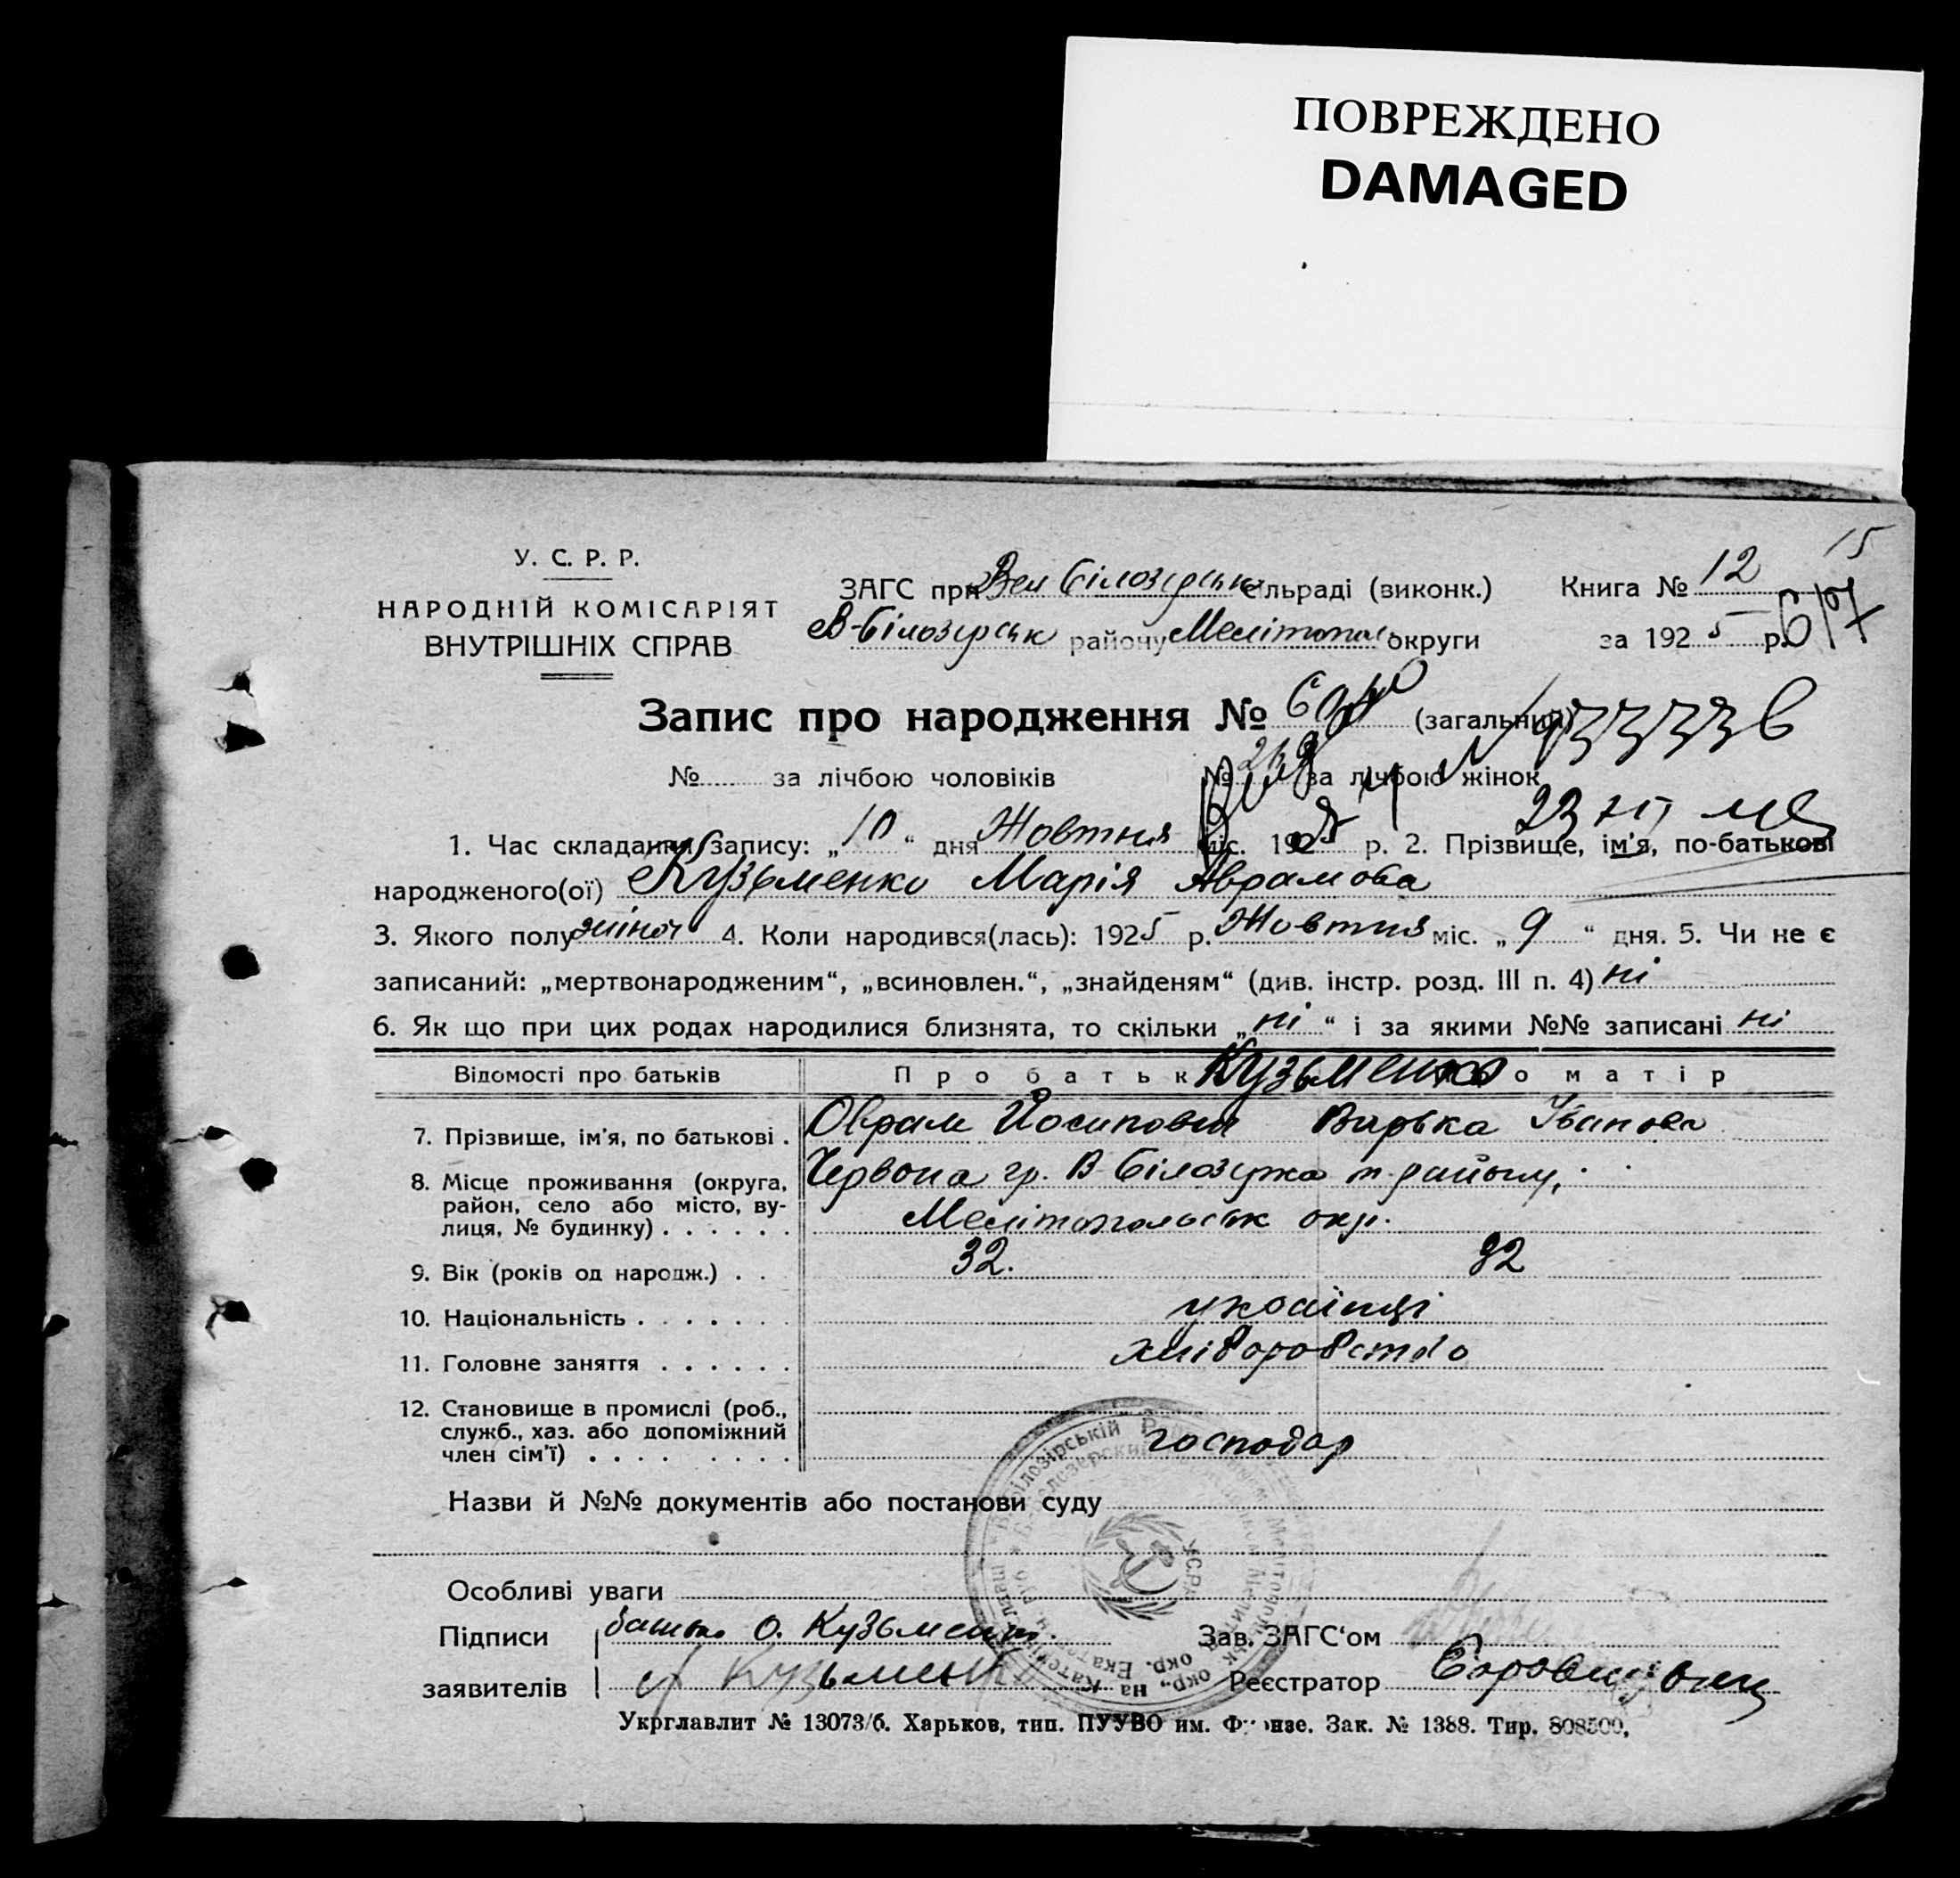 ПОВРЕЖДЕНО
DAMAGED
15
У. С. Р. Р.
НАРОДНІЙ КОМІСАРІЯТ
ВНУТРІШНІХ СПРАВ
ЗАГС при Вел Білозірськ сільраді (виконк.) Книга № 12
В-Білозірськ району Мелітопол округи за 1925 р. 617
Запис про народження № (загальний)
№ за лічбою чоловіків № за лічбою жінок
1. Час складання запису: „10“ дня Жовтня міс. 1925 р. 2. Прізвище, ім'я, по-батькові
народженого(ої) Кузьменко Марія Аврамова
3. Якого полу жіноч 4. Коли народився(лась): 1925 р. Жовтня міс. „9“ дня. 5. Чи не є
записаний: „мертвонародженим“, „всиновлен.“, „знайденям“ (див. інстр. розд. III п. 4) ні
6. Як що при цих родах народилися близнята, то скільки „ні“ і за якими №№ записані ні
Відомості про батьків Про батьк Кузьменко о матір
7. Прізвище, ім'я, по батькові . Оврам Йосипович Варька Іванова
8. Місце проживання (округа, Червона гр. В Білозірка т району,
район, село або місто, ву-
лиця, № будинку) . . . . . . Мелітопольськ окр.
9. Вік (років од народж.) . . 32. 32
10. Національність . . . . . . . українці
11. Головне заняття . . . . . . хліборобство
12. Становище в промислі (роб.,
служб., хаз. або допоміжний
член сім'ї) . . . . . . . . господар
Назви й №№ документів або постанови суду
Особливі уваги
Підписи батько О. Кузьменко. Зав. ЗАГС'ом
заявителів Кузьменко Реєстратор
Укрглавлит № 13073/б. Харьков, тип. ПУУВО им. Фрунзе. Зак. № 1388. Тир. 808500,